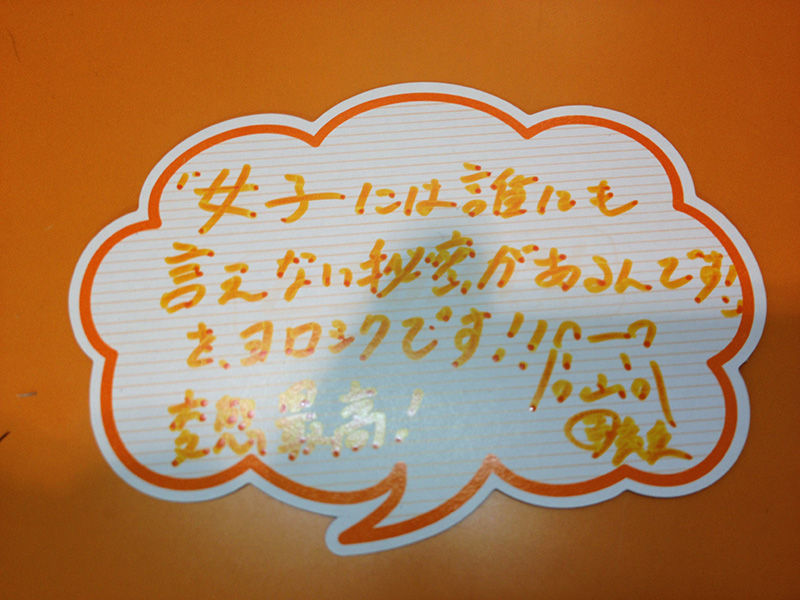 「女子には誰にも
言えない秘密があるんです!」
を、ヨロシクです!!
最高!